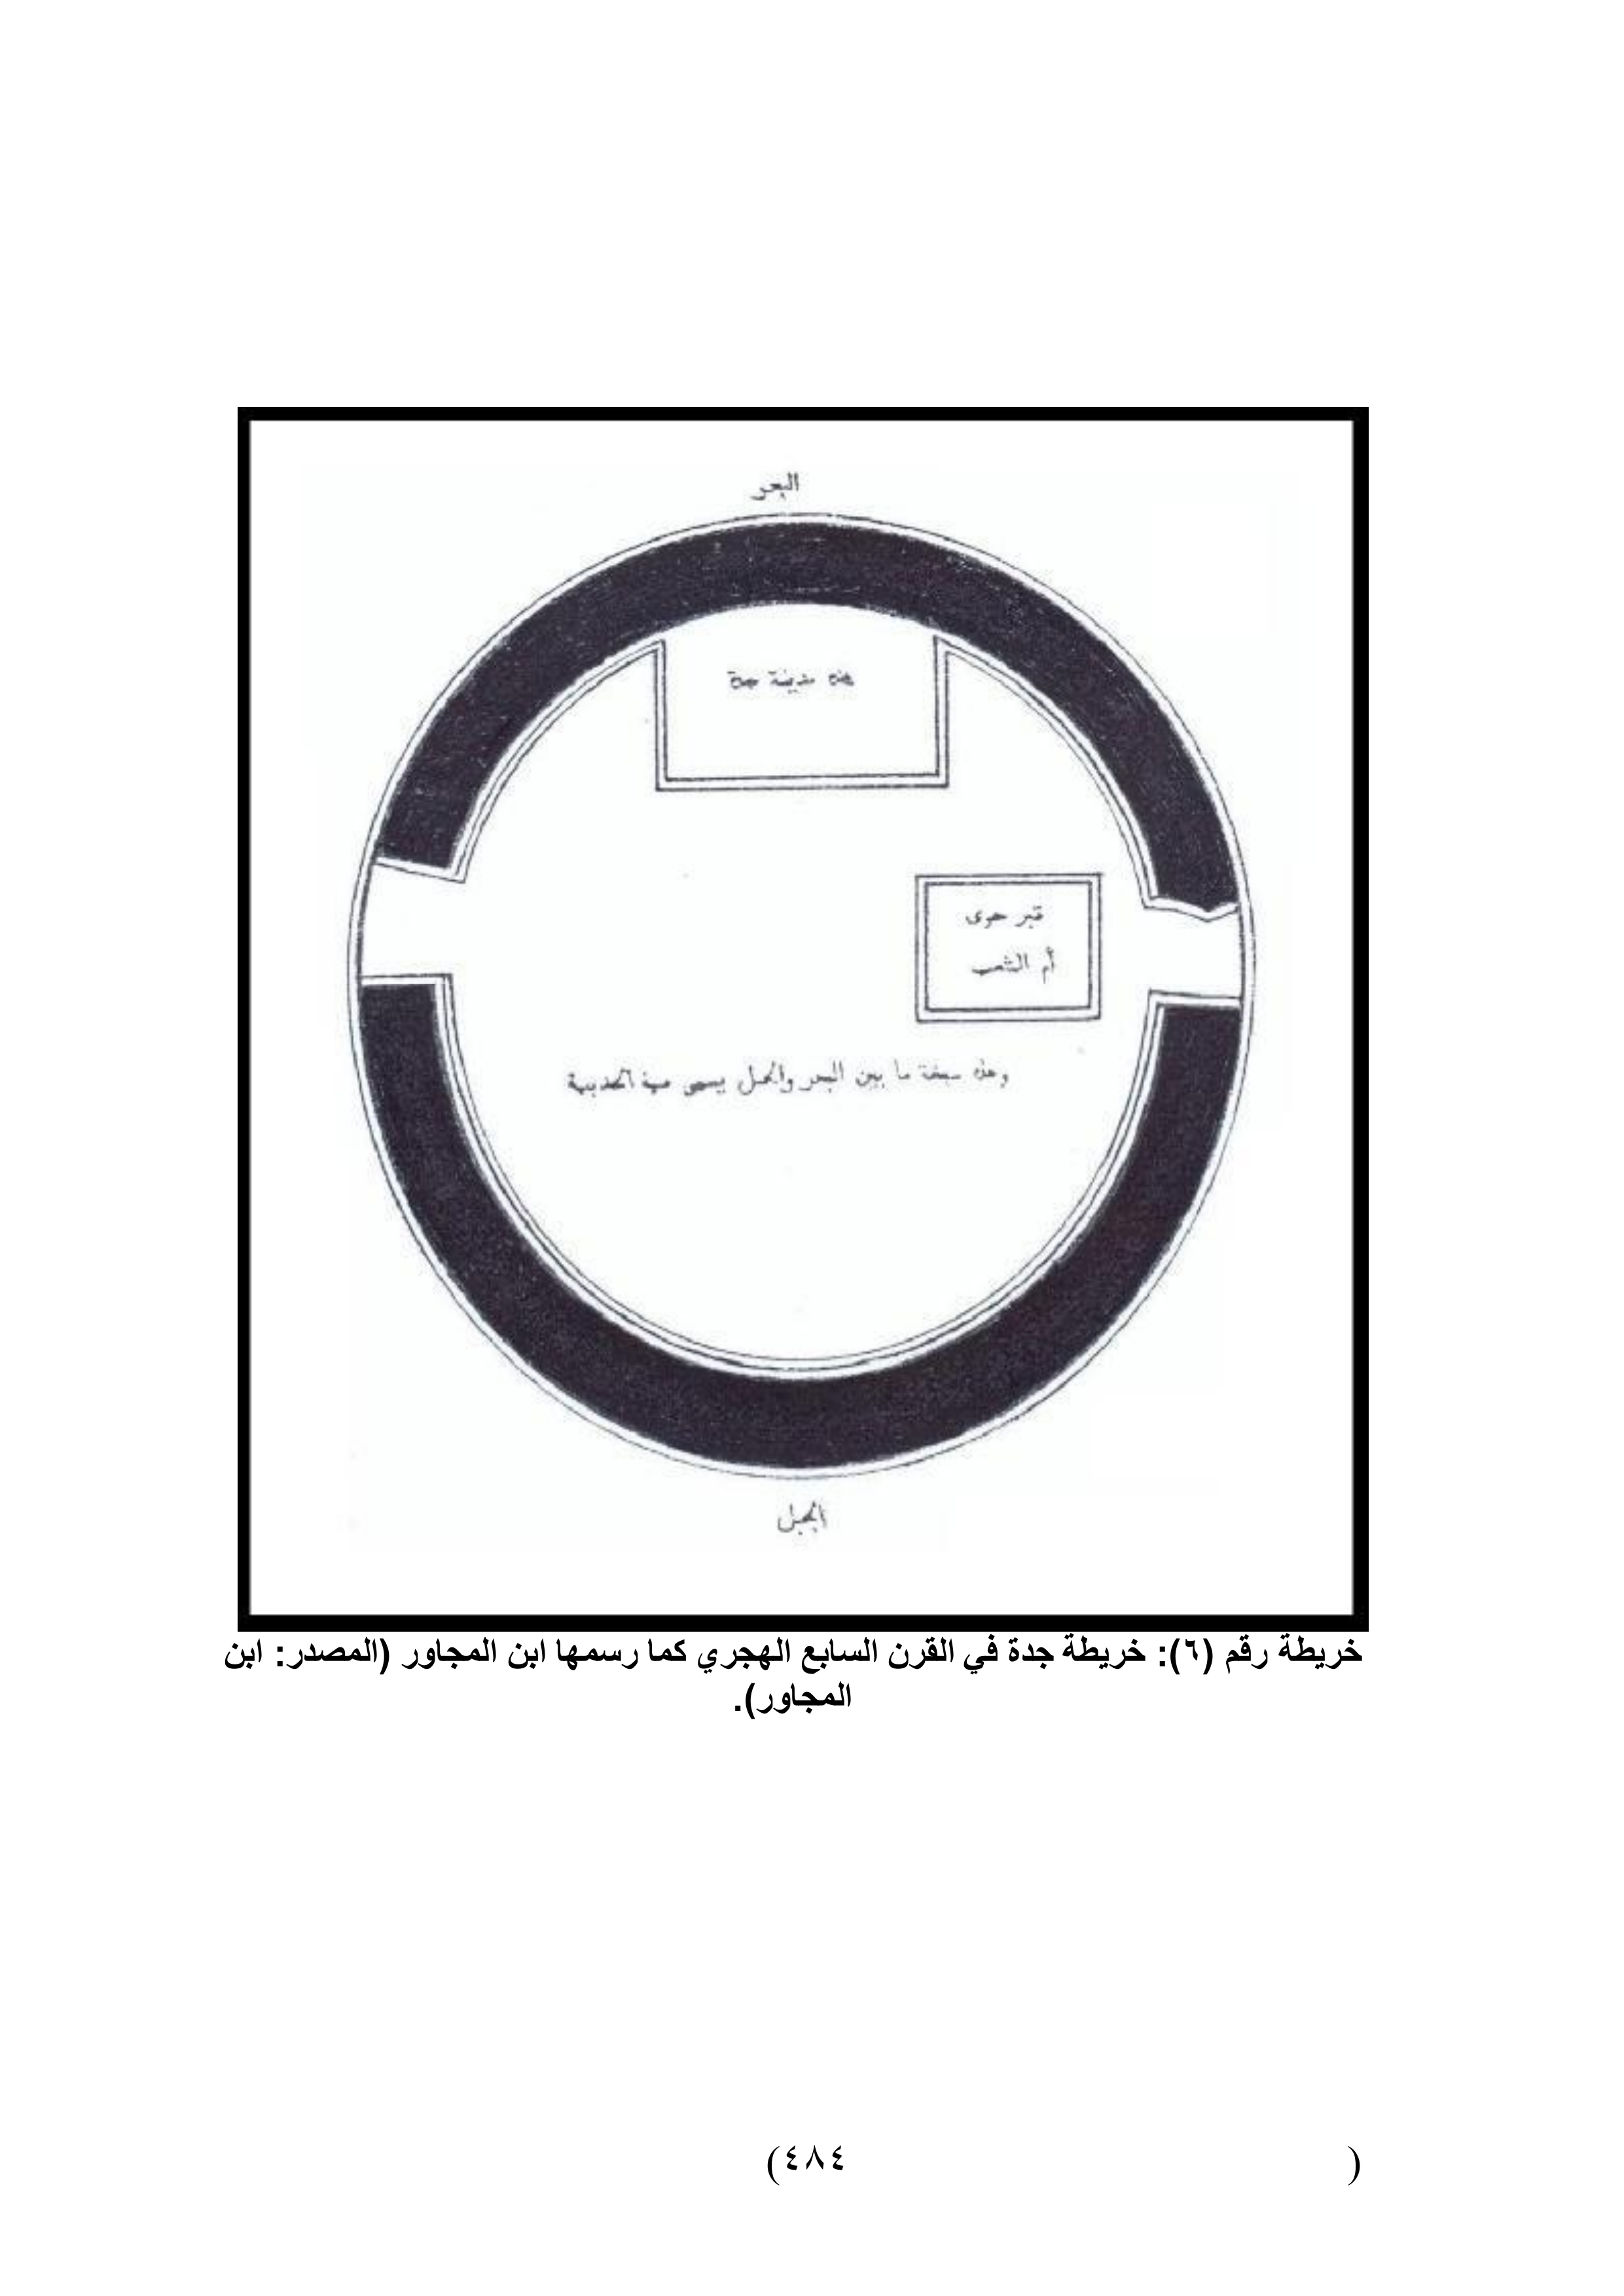 البحر
هذه مدينة جدة
قبر حوى
أم الشعب
وهذه سبخة ما بين البحر والجبل يسمى الحديبية
الجبل
خريطة رقم (٦): خريطة جدة في القرن السابع الهجري كما رسمها ابن المجاور (المصدر: ابن
المجاور).
(٤٨٤)